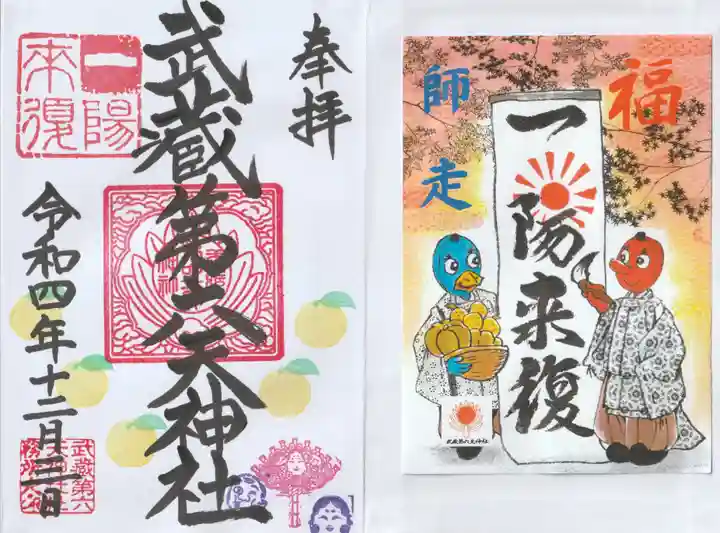 奉拝
武蔵第六天神社
一陽
来復
令和四年十二月三日
福
師走
一陽来復
武蔵第六天神社